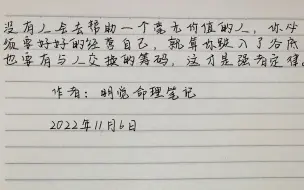 没有人会去帮助一个毫无价值的人，你必
须要好好的经营自己，就算你跌入了谷底
也要有与人交换的筹码，这才是强者定律。
作者：明觉命理笔记
2022年11月6日